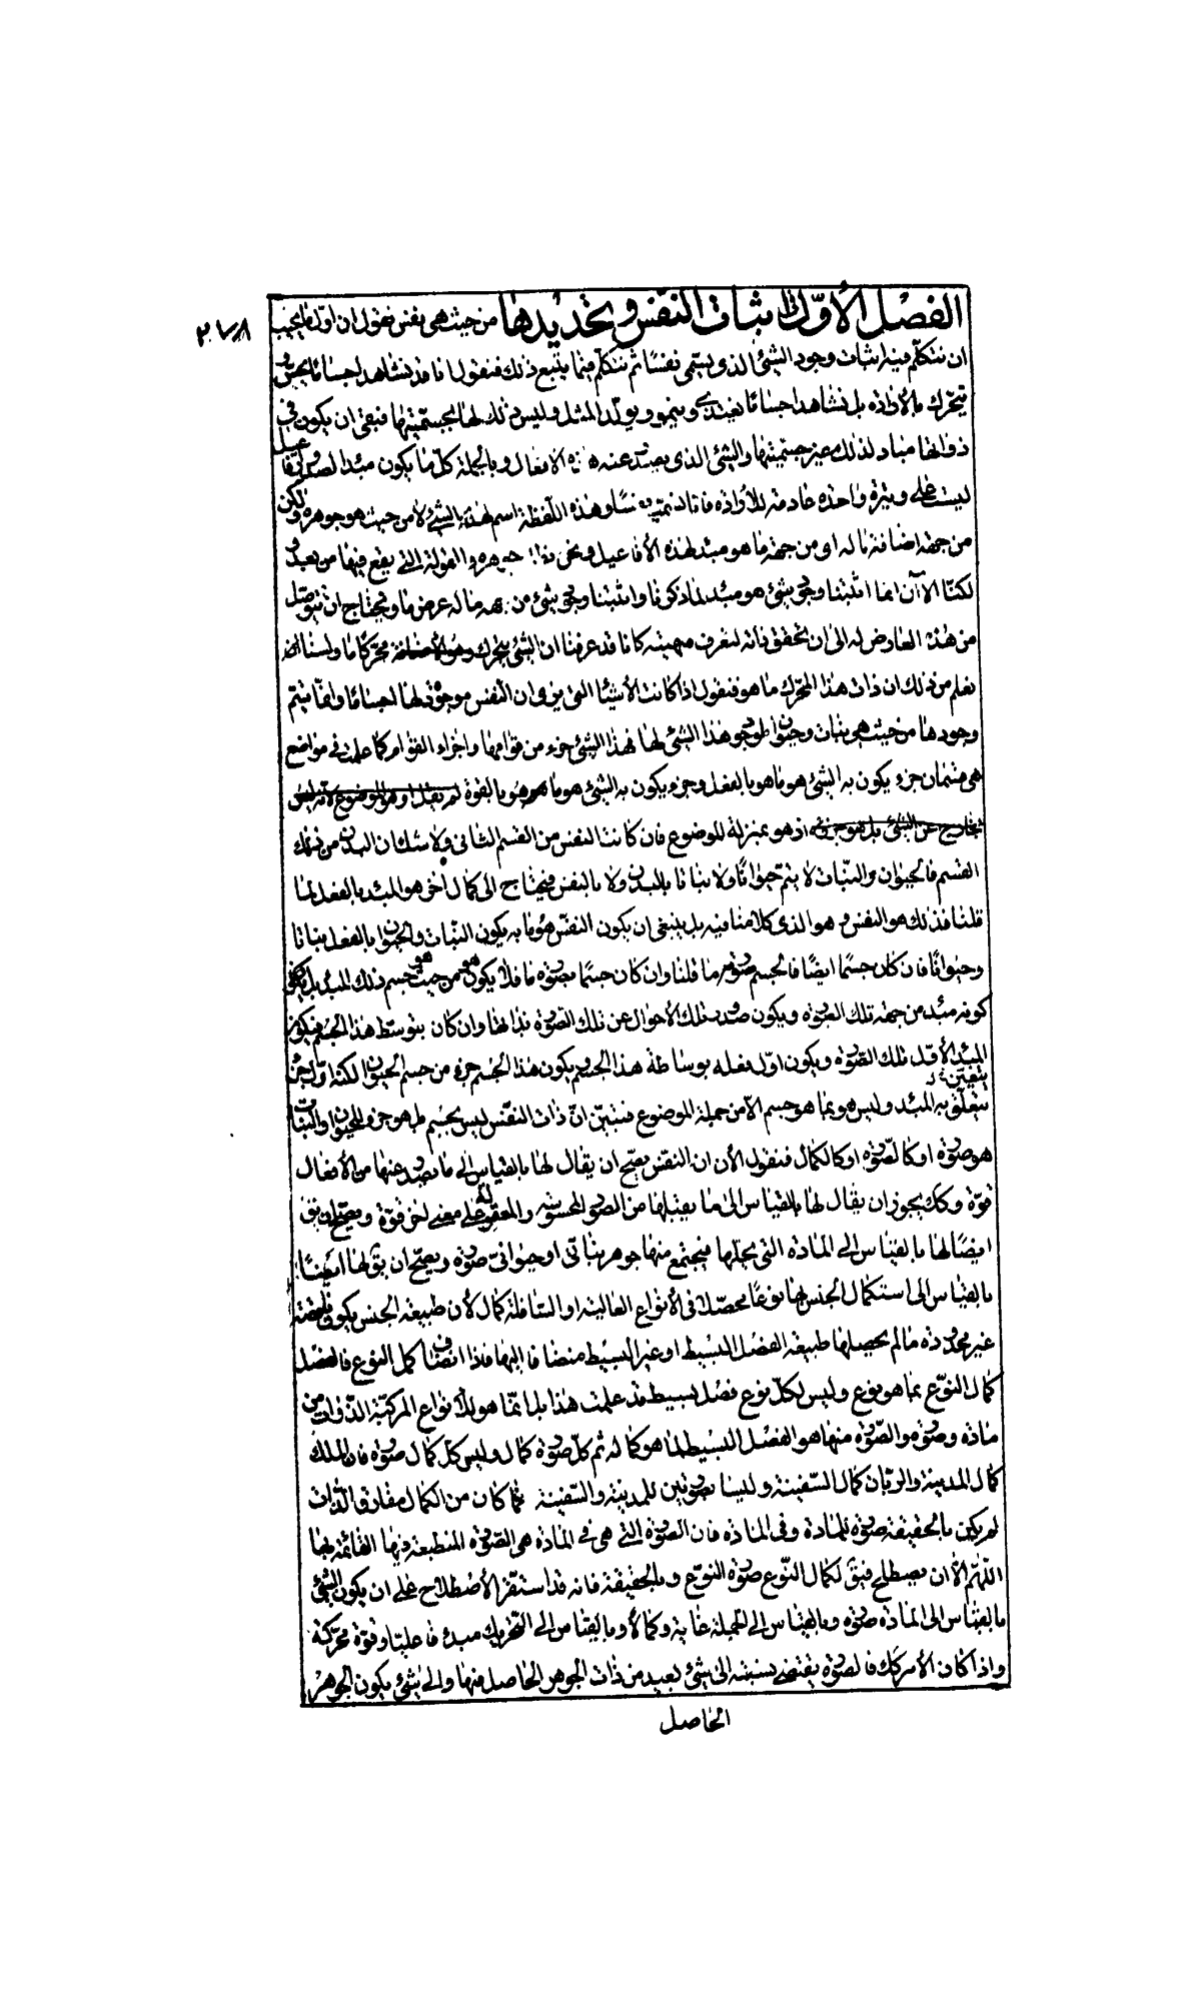 الفصل الأوّل في اثبات النفس وتحديدها من حيث هي نفس نقول ان اوّل ما يجب
ان نتكلّم فيه اثبات وجود الشئ الذى يسمى نفسًا ثم نتكلّم فيما يتبع ذلك فنقول انا قد نشاهد اجسامًا يحسّ و
يتحرّك بالأرادة بل نشاهد اجسامًا يغتذى وينمو ويولّد المثل وليس ذلك لها لجسميّتها فبقى ان يكون فى
ذواتها مباد لذلك غير جسميتها والشئ الذى يصدر عنه هذه الافعال وبالجملة كلّ ما يكون مبدا لصدور افاعيل
ليست على وتيرة واحدة عادمة للأرادة فانا نسميه نفسًا وهذه اللّفظة اسم لهذا الشئ لا من حيث هو جوهره ولكن
من جهة اضافة ما له او من جهة ما هو مبدء لهذه الأفاعيل ونحن نطلب جوهره والمقولة التى يقع فيها من بعد و
لكنّا الآن انما اثبتنا وجود شئ هو مبدء لما ذكرنا واثبتنا وجود شئ من جهة ما له عرض ما ويحتاج ان نتوصّل
من هذا العارض له الى ان نحقق ذاته لنعرف مهيته كانا قد عرفنا ان لشئ يتحرك محرّكا ما ولسنا
نعلم من ذلك ان ذات هذا المحرّك ما هو فنقول اذا كانت الأشيا التى يرى ان النّفس موجودة لها اجسامًا وانما يتم
وجودها من حيث هى نبات وحيوان لوجود هذا الشئ لها فهذا الشئ جزء من قوامها واجزاء القوام كما علمت فى مواضع
هى قسمان جزء يكون به الشئ هو ما هو بالفعل وجزء يكون به الشئ هو ما هو بالقوة
اذ هو بمنزلة الموضوع فان كانت النفس من القسم الثانى ولا شك ان البدن من ذلك
القسم فالحيوان والنبات لا يتم حيوانًا ولا نباتا بالبدن ولا بالنفس فيحتاج الى كمال أخر هو المبدء بالفعل لما
قلنا فذلك هو النفس وهو الذى كلامنا فيه بل ينبغى ان يكون النفس هو ما به يكون النبات والحيوان بالفعل نباتا
وحيوانًا فان كان جسمًا ايضًا فالجسم صورته ما قلنا وان كان جسمًا بصورة ما فلا يكون هو من حيث هو جسم ذلك المبدء بل يكون
كونه مبدء من جهة تلك الصورة ويكون صدور تلك الأحوال عن تلك الصورة بذاتها وان كان بتوسط هذا الجسم فيكون
المبدء الأول تلك الصورة ويكون اول فعله بوساطة هذا الجسم ويكون هذا الجسم جزء من جسم الحيوان لكنه اول جزء
يتعلّق به المبدء وليس هو بما هو جسم الا من جملة الموضوع فتبيّن انّ ذات النفس ليس بجسم بل هو جزء للحيوان او النبات
هو صورة او كالصورة او كالكمال فنقول الأن ان النفس يصح ان يقال لها بالقياس الى ما يصدر عنها من الأفعال
قوّة وكك يجوز ان يقال لها بالقياس الى ما يقبلها من الصور المحسوسة والمعقولة على معنى اخر قوّة ويصح ان يق
ايضًا لها بالقياس الى المادة التى يحلها فيجتمع منها جوهر نباتى او حيوانى صورة ويصح ان يق لها ايضًا
بالقياس الى استكمال الجنس بها نوعًا محصّلا فى الأنواع العالية او السافلة كمال لأن طبيعة الجنس يكون ناقصة
غير محدودة ما لم يحصلها طبيعة الفصل البسيط او غير البسيط منضافا اليها فاذا انضاف كمل النوع فالفصل
كمال النوع بما هو نوع وليس لكلّ نوع فصل بسيط قد علمت هذا بل انما هو للأنواع المركبة الذوات من
مادة وصورة والصّورة منها هو الفصل البسيط لما هو كماله ثم كلّ صورة كمال وليس كلّ كمال صورة فان الملك
كمال المدينة والربّان كمال السفينة وليسا بصورتين للمدينة والسفينة فما كان من الكمال مفارق الذات
لم يكن بالحقيقة صورة للمادة وفى المادة فان الصورة التى هى فى المادة هى الصّورة المنطبعة فيها القائمة بها
اللّهم الّا ان يصطلح فيق لكمال النّوع صورة النوع وبالحقيقة فانه قد استقر الأصطلاح على ان يكون الشئ
بالقياس الى المادة صورة وبالقياس الى الجملة غاية وكمالا وبالقياس الى التحريك مبدء فاعليا وقوة محرّكة
واذا كان الأمر كك فالصورة يقتضى نسبته الى شئ بعيد من ذات الجوهر الحاصل منها والى شئ يكون الجوهر
الحاصل